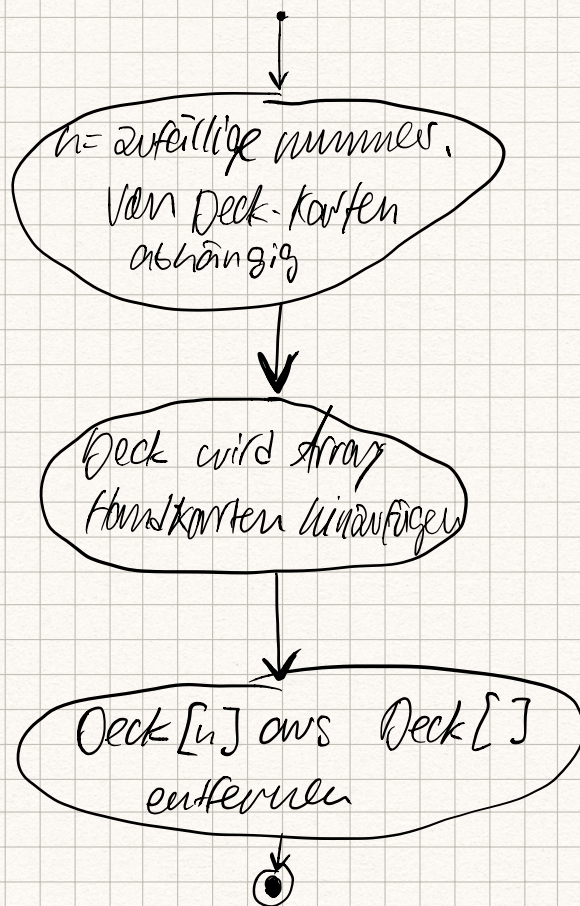 n= zufällige nummer.
Von Deck-Karten
abhängig
Deck wird Array
Handkarten hinzufügen
Deck[n] aus Deck[ ]
entfernen